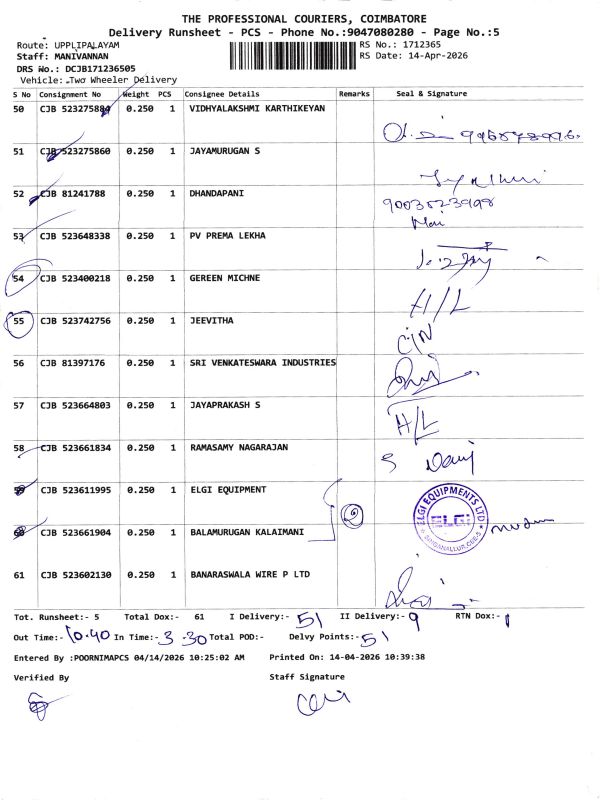 THE PROFESSIONAL COURIERS, COIMBATORE
Delivery Runsheet - PCS - Phone No.:9047080280 - Page No.:5
Route: UPPLIPALAYAM
RS No.: 1712365
Staff: MANIVANNAN
RS Date: 14-Apr-2026
DRS No.: DCJB171236505
Vehicle: Two Wheeler Delivery
S No Consignment No Weight PCS Consignee Details Remarks Seal & Signature
50 CJB 523275884 0.250 1 VIDHYALAKSHMI KARTHIKEYAN
51 CJB 523275860 0.250 1 JAYAMURUGAN S
52 CJB 81241788 0.250 1 DHANDAPANI
9003523998
Mani
53 CJB 523648338 0.250 1 PV PREMA LEKHA
54 CJB 523400218 0.250 1 GEREEN MICHNE
H/L
55 CJB 523742756 0.250 1 JEEVITHA
C/N
56 CJB 81397176 0.250 1 SRI VENKATESWARA INDUSTRIES
57 CJB 523664803 0.250 1 JAYAPRAKASH S
H/L
58 CJB 523661834 0.250 1 RAMASAMY NAGARAJAN
59 CJB 523611995 0.250 1 ELGI EQUIPMENT
2
ELGI EQUIPMENTS LTD
ELGI
SINGANALLUR, CBE-5
60 CJB 523661904 0.250 1 BALAMURUGAN KALAIMANI
61 CJB 523602130 0.250 1 BANARASWALA WIRE P LTD
Tot. Runsheet:- 5 Total Dox:- 61 I Delivery:- 51 II Delivery:- 9 RTN Dox:- 1
Out Time:- 10.40 In Time:- 3.30 Total POD:- Delvy Points:- 51
Entered By :POORNIMAPCS 04/14/2026 10:25:02 AM Printed On: 14-04-2026 10:39:38
Verified By Staff Signature